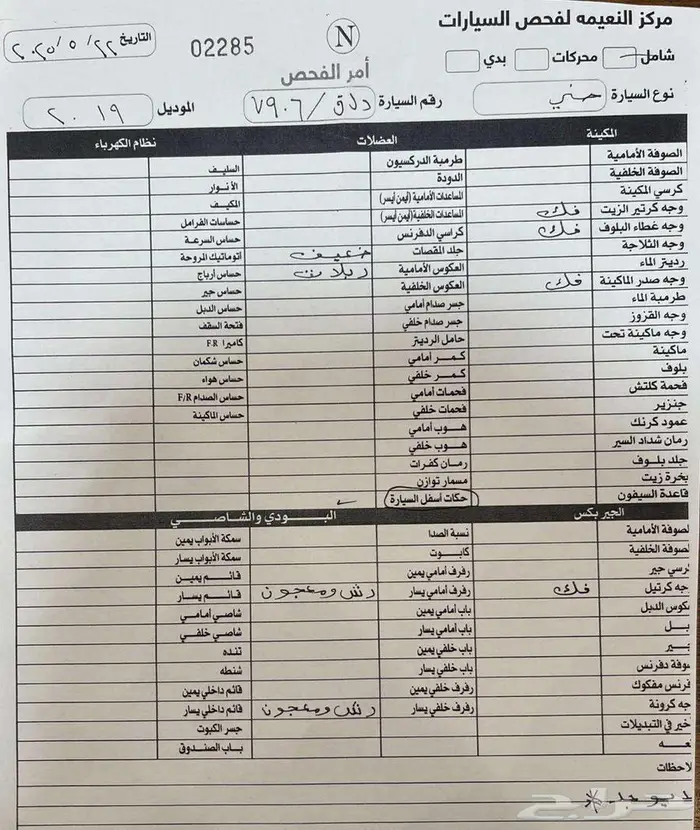 مركز النعيمه لفحص السيارات
N
02285
التاريخ ٢٠٢٥/٥/٢٢
شامل محركات بدي
أمر الفحص
نوع السيارة رقم السيارة ٧٩٠٦ الموديل ٢٠١٩
المكينة العضلات نظام الكهرباء
الصوفة الأمامية طرمبة الدركسيون السليف
الصوفة الخلفية الدودة الأنوار
كرسي المكينة المساعدات الأمامية (أيمن أيسر) المكيف
وجه كرتير الزيت فك المساعدات الخلفية (أيمن أيسر) حساسات الفرامل
وجه غطاء البلوف فك كراسي الدفرنس حساس السرعة
وجه الثلاجة جلد المقصات ضعيف أتوماتيك المروحة
رديتر الماء العكوس الأمامية ربلات حساس أرباج
وجه صدر الماكينة فك العكوس الخلفية حساس جير
طرمبة الماء جسر صدام أمامي حساس الدبل
وجه القزوز جسر صدام خلفي فتحة السقف
وجه ماكينة تحت حامل الرديتر كاميرا F.R
ماكينة كمر أمامي حساس شكمان
بلوف كمر خلفي حساس هواء
فحمة كلتش فحمات أمامي حساس الصدام F/R
جنزير فحمات خلفي حساس الماكينة
عمود كرنك هوب أمامي
رمان شداد السير هوب خلفي
جلد بلوف رمان كفرات
بخرة زيت مسمار توازن
قاعدة السيفون حكات أسفل السيارة
الجير بكس البودي والشاصي
لصوفة الأمامية نسبة الصدا سمكة الأبواب يمين
لصوفة الخلفية كابوت سمكة الأبواب يسار
رسي جير رفرف أمامي يمين قائم يمين
جه كرتيل فك رفرف أمامي يسار رش ومعجون قائم يسار
كوس الدبل باب أمامي يمين شاصي أمامي
بل باب أمامي يسار شاصي خلفي
ير باب خلفي يمين تنده
وفة دفرنس باب خلفي يسار شنطه
فرنس مفكوك رفرف خلفي يمين قائم داخلي يمين
جه كرونة رفرف خلفي يسار رش ومعجون قائم داخلي يسار
خير في التبديلات جسر الكبوت
عه باب الصندوق
لاحظات
حراج